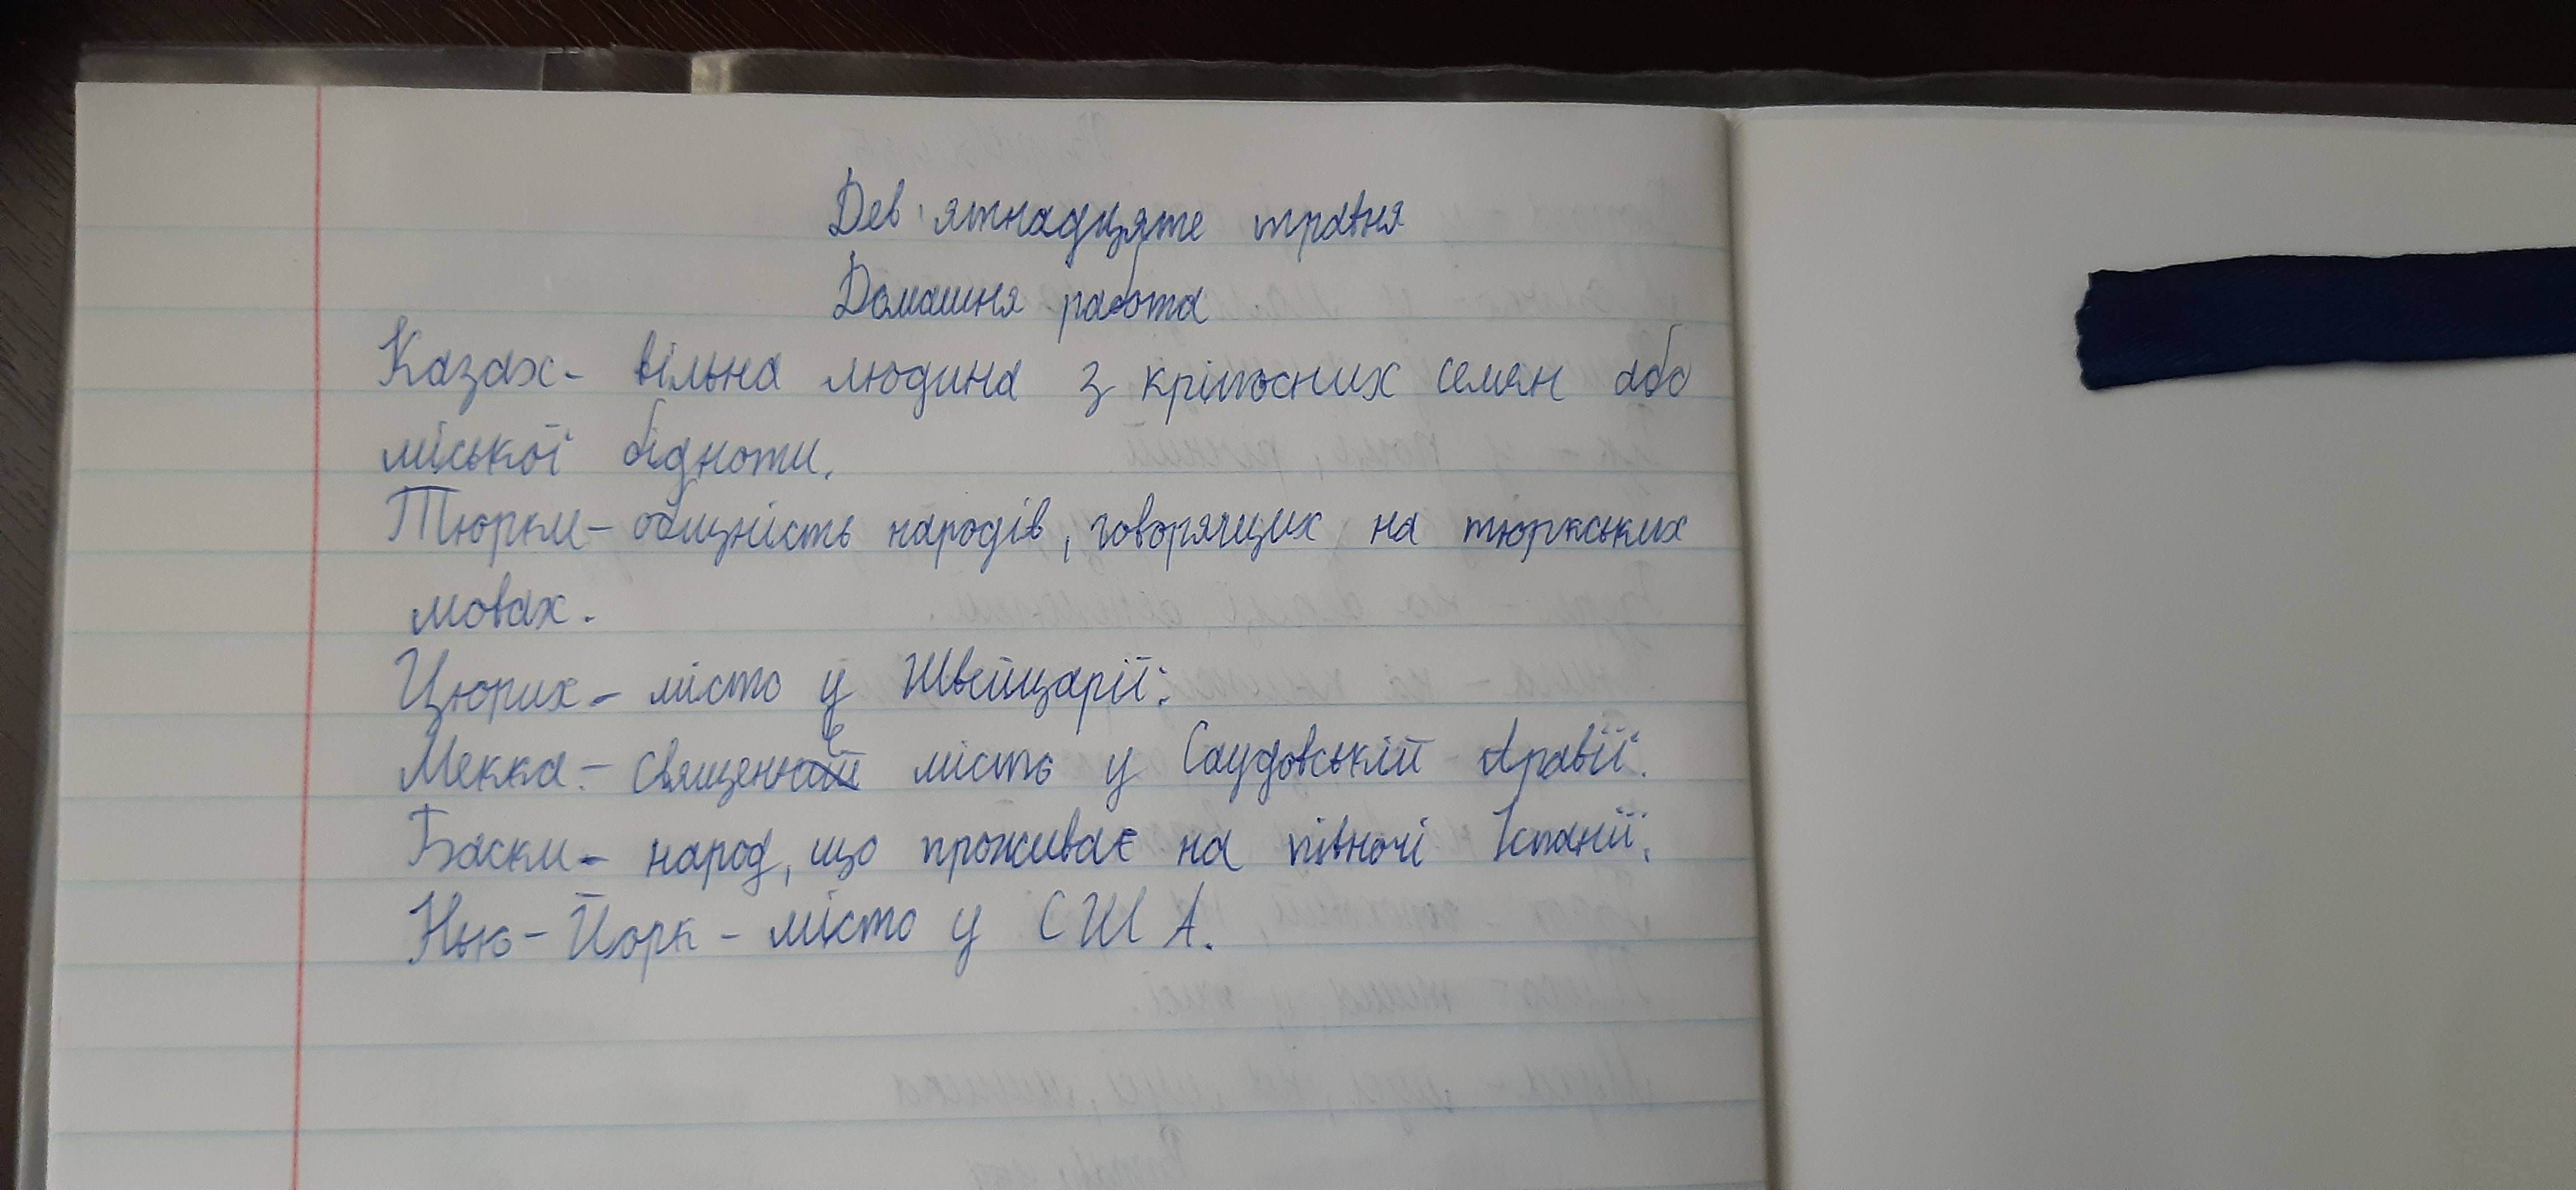 Дев'ятнадцяте травня
Домашня работа
Казах- вільна людина з кріпосних семян або
міської бідноти.
Тюрки- общність народів, говорящих на тюркських
мовах.
Цюрих- місто у Швейцарії.
Мекка- священне місто у Саудовській Аравії.
Баски- народ, що проживає на півночі Іспанії.
Нью-Йорк- місто у США.